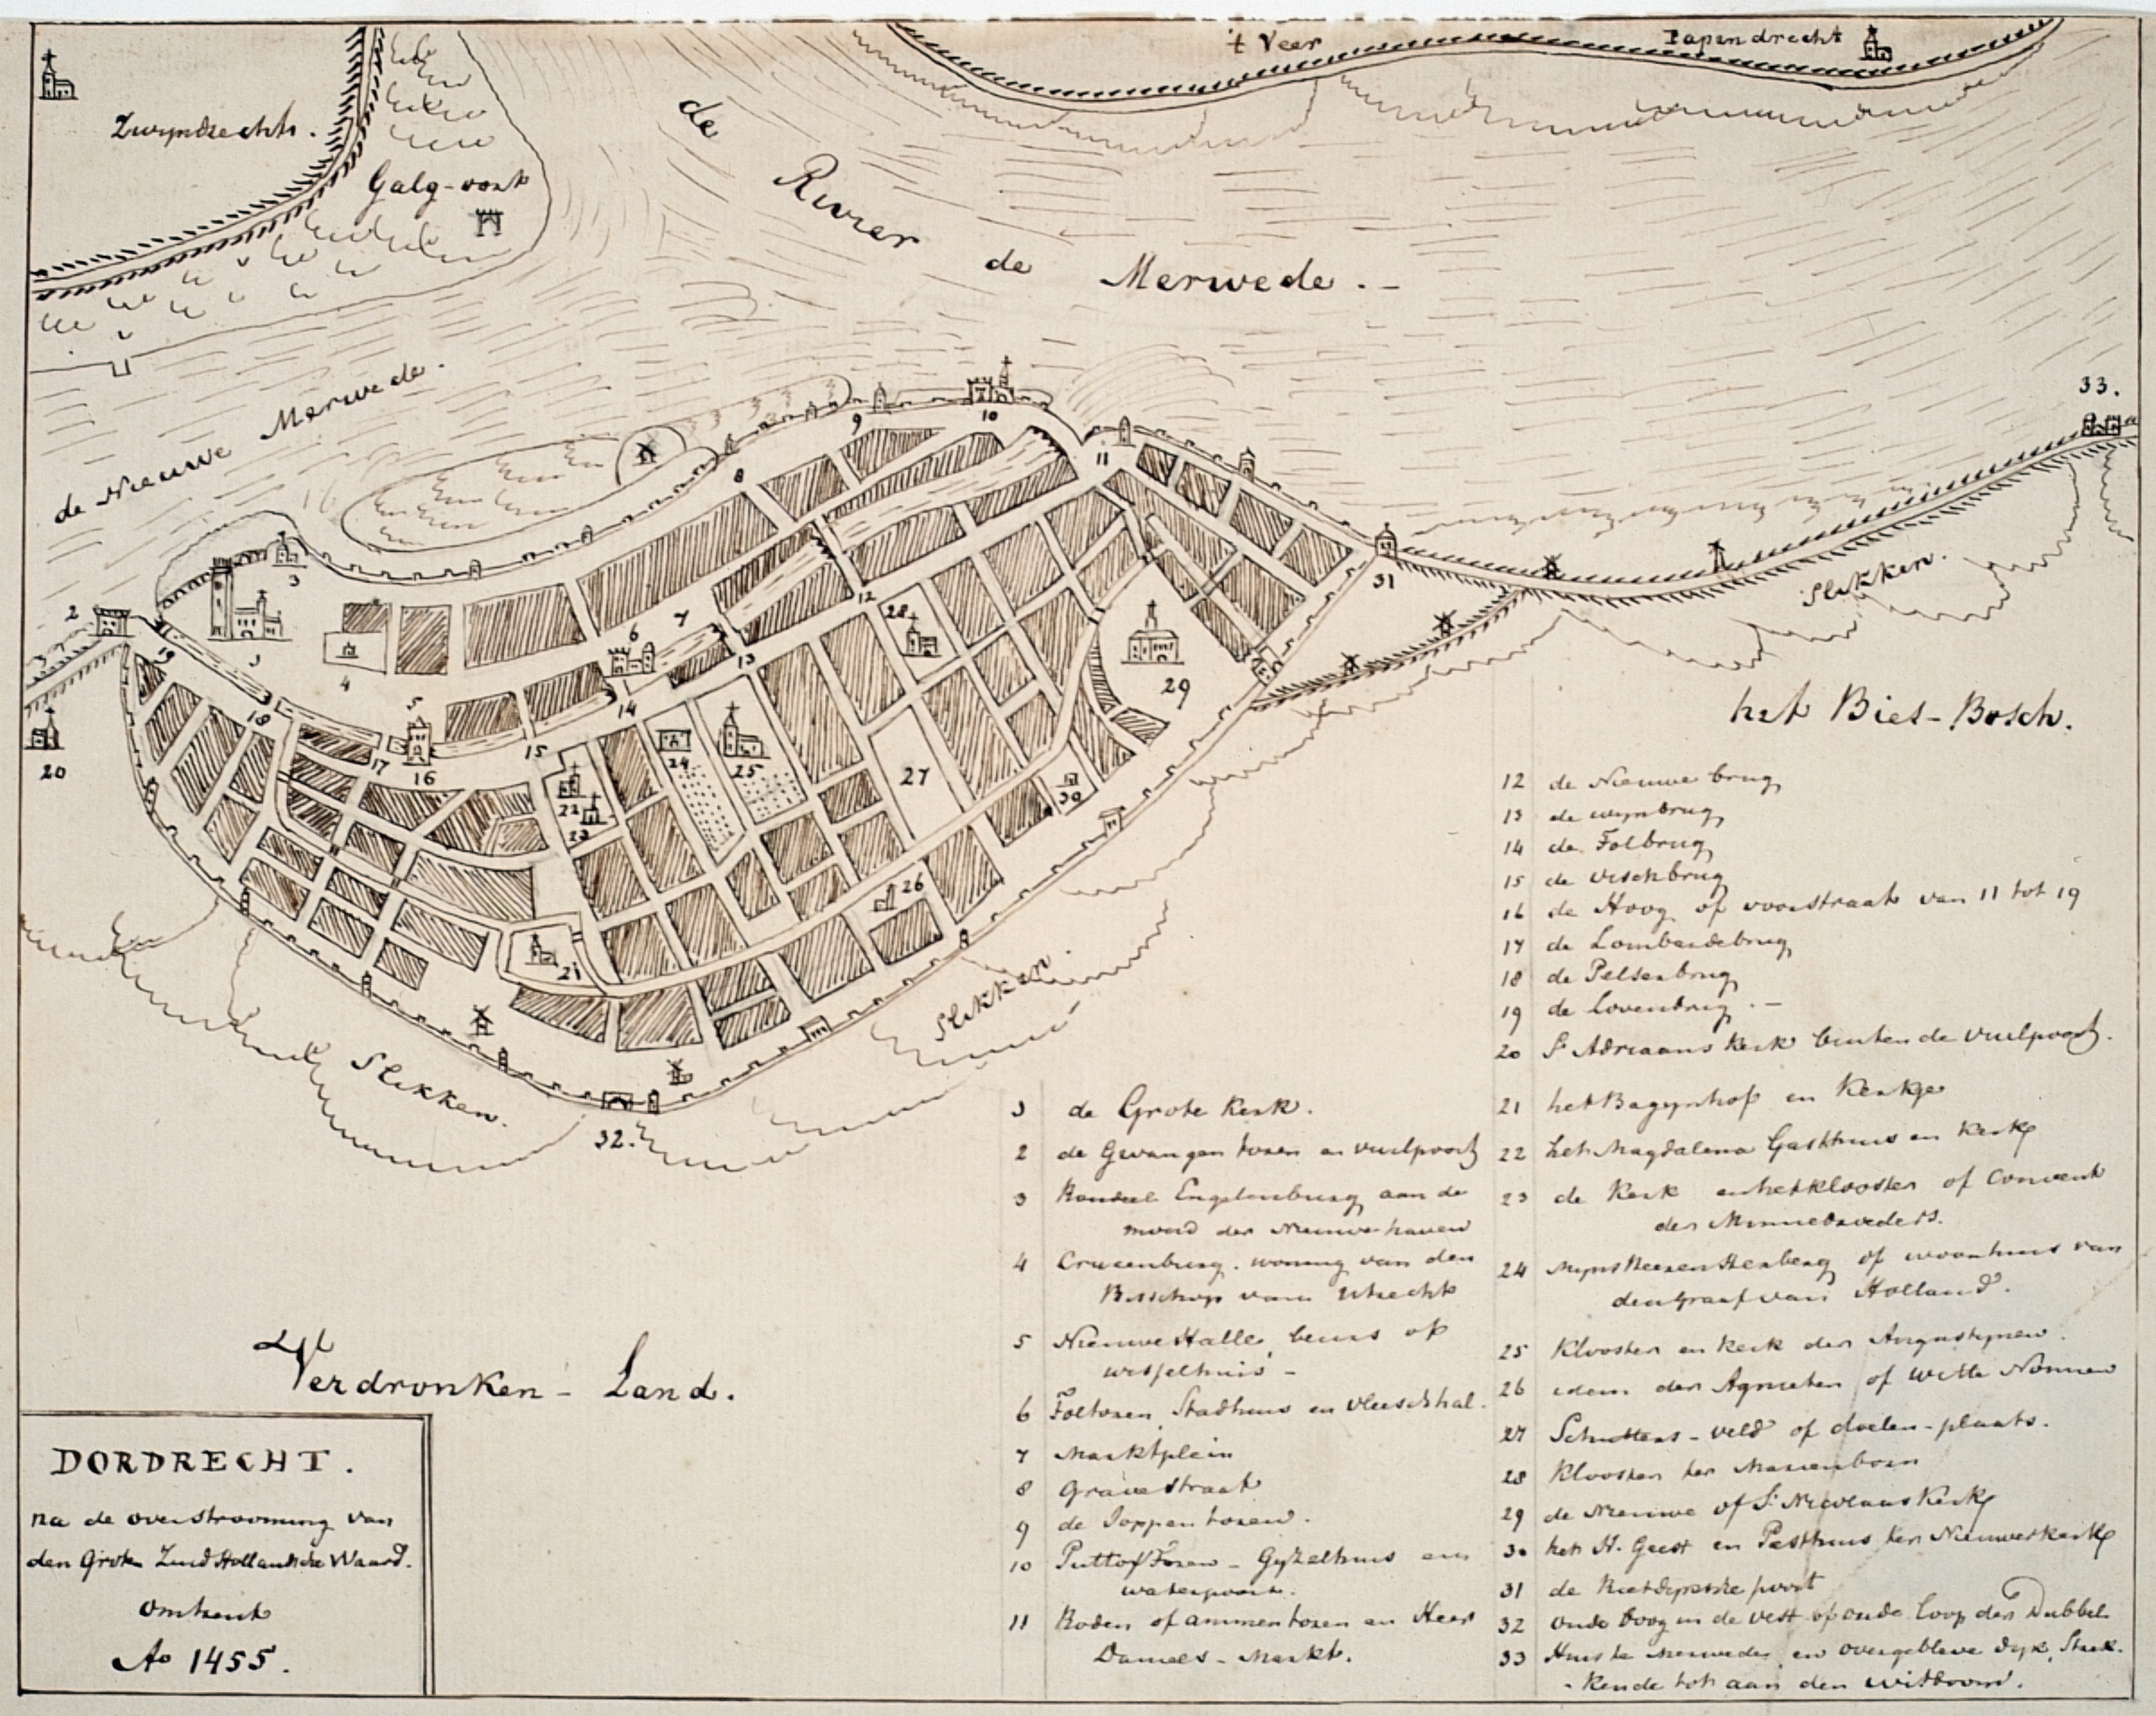 't Veer
Papendrecht
Zwyndrecht.
Galg-oort
de Rivier de Merwede.-
de Nieuwe Merwede.
33.
10
9
11
8
3
31
2
12
28
6
7
19
1
13
4
29
5
14
18
15
17
16
20
24
25
27
22
23
30
26
21
32.
Slikken.
het Bies-Bosch.
Slikken
Slikken.
Het
Verdronken - Land.
DORDRECHT.
na de overstrooming van
den Groten Zuid Hollandsche Waard.
omtrent
Ao 1455.
1 de Grote Kerk.
2 de Gevangen toren en vuilpoort
3 Rondeel Engelenburg aan de
mond der Nieuwe haven
4 Crusenburg. woning van den
Bisschop van Utrecht
5 Nieuwe Halle, beurs of
wisselhuis -
6 Foltoren, Stadhuis en vleeschhal.
7 Marktplein
8 Gravestraat
9 de Joppen toren.
10 Puttox Toren - Gyzelhuis en
waterpoort.
11 Roden of ammentoren en Heer
Daniels - Markt.
12 de Nieuwe brug
13 de wynbrug
14 de Tolbrug
15 de vischbrug
16 de Hoog of voorstraat van 11 tot 19
17 de Lombardebrug
18 de Pelserbrug
19 de Lovenbrug. -
20 St Adriaans Kerk buiten de vuilpoort.
21 het Bagynhof en Kerkge
22 het Magdalena Gasthuis en Kerk
23 de Kerk en het klooster of Convent
der Minnebroeders.
24 Myns Heeren Herberg of woonhuis van
den Graaf van Holland.
25 Klooster en kerk der Augustynen.
26 idem der Agnieten of witte Nonnen
27 Schutters - veld of doelen - plaats.
28 Klooster ter Marienborn
29 de Nieuwe of St Nicolaas Kerk
30 het H. Geest en Pesthuis ter Nieuwerkerk
31 de Rietdyksche poort
32 oude boog in de vest of oude loop der Dubbel
33 Huis te Merwede, en overgebleve dyk, Strek-
- kende tot aan den witboom.